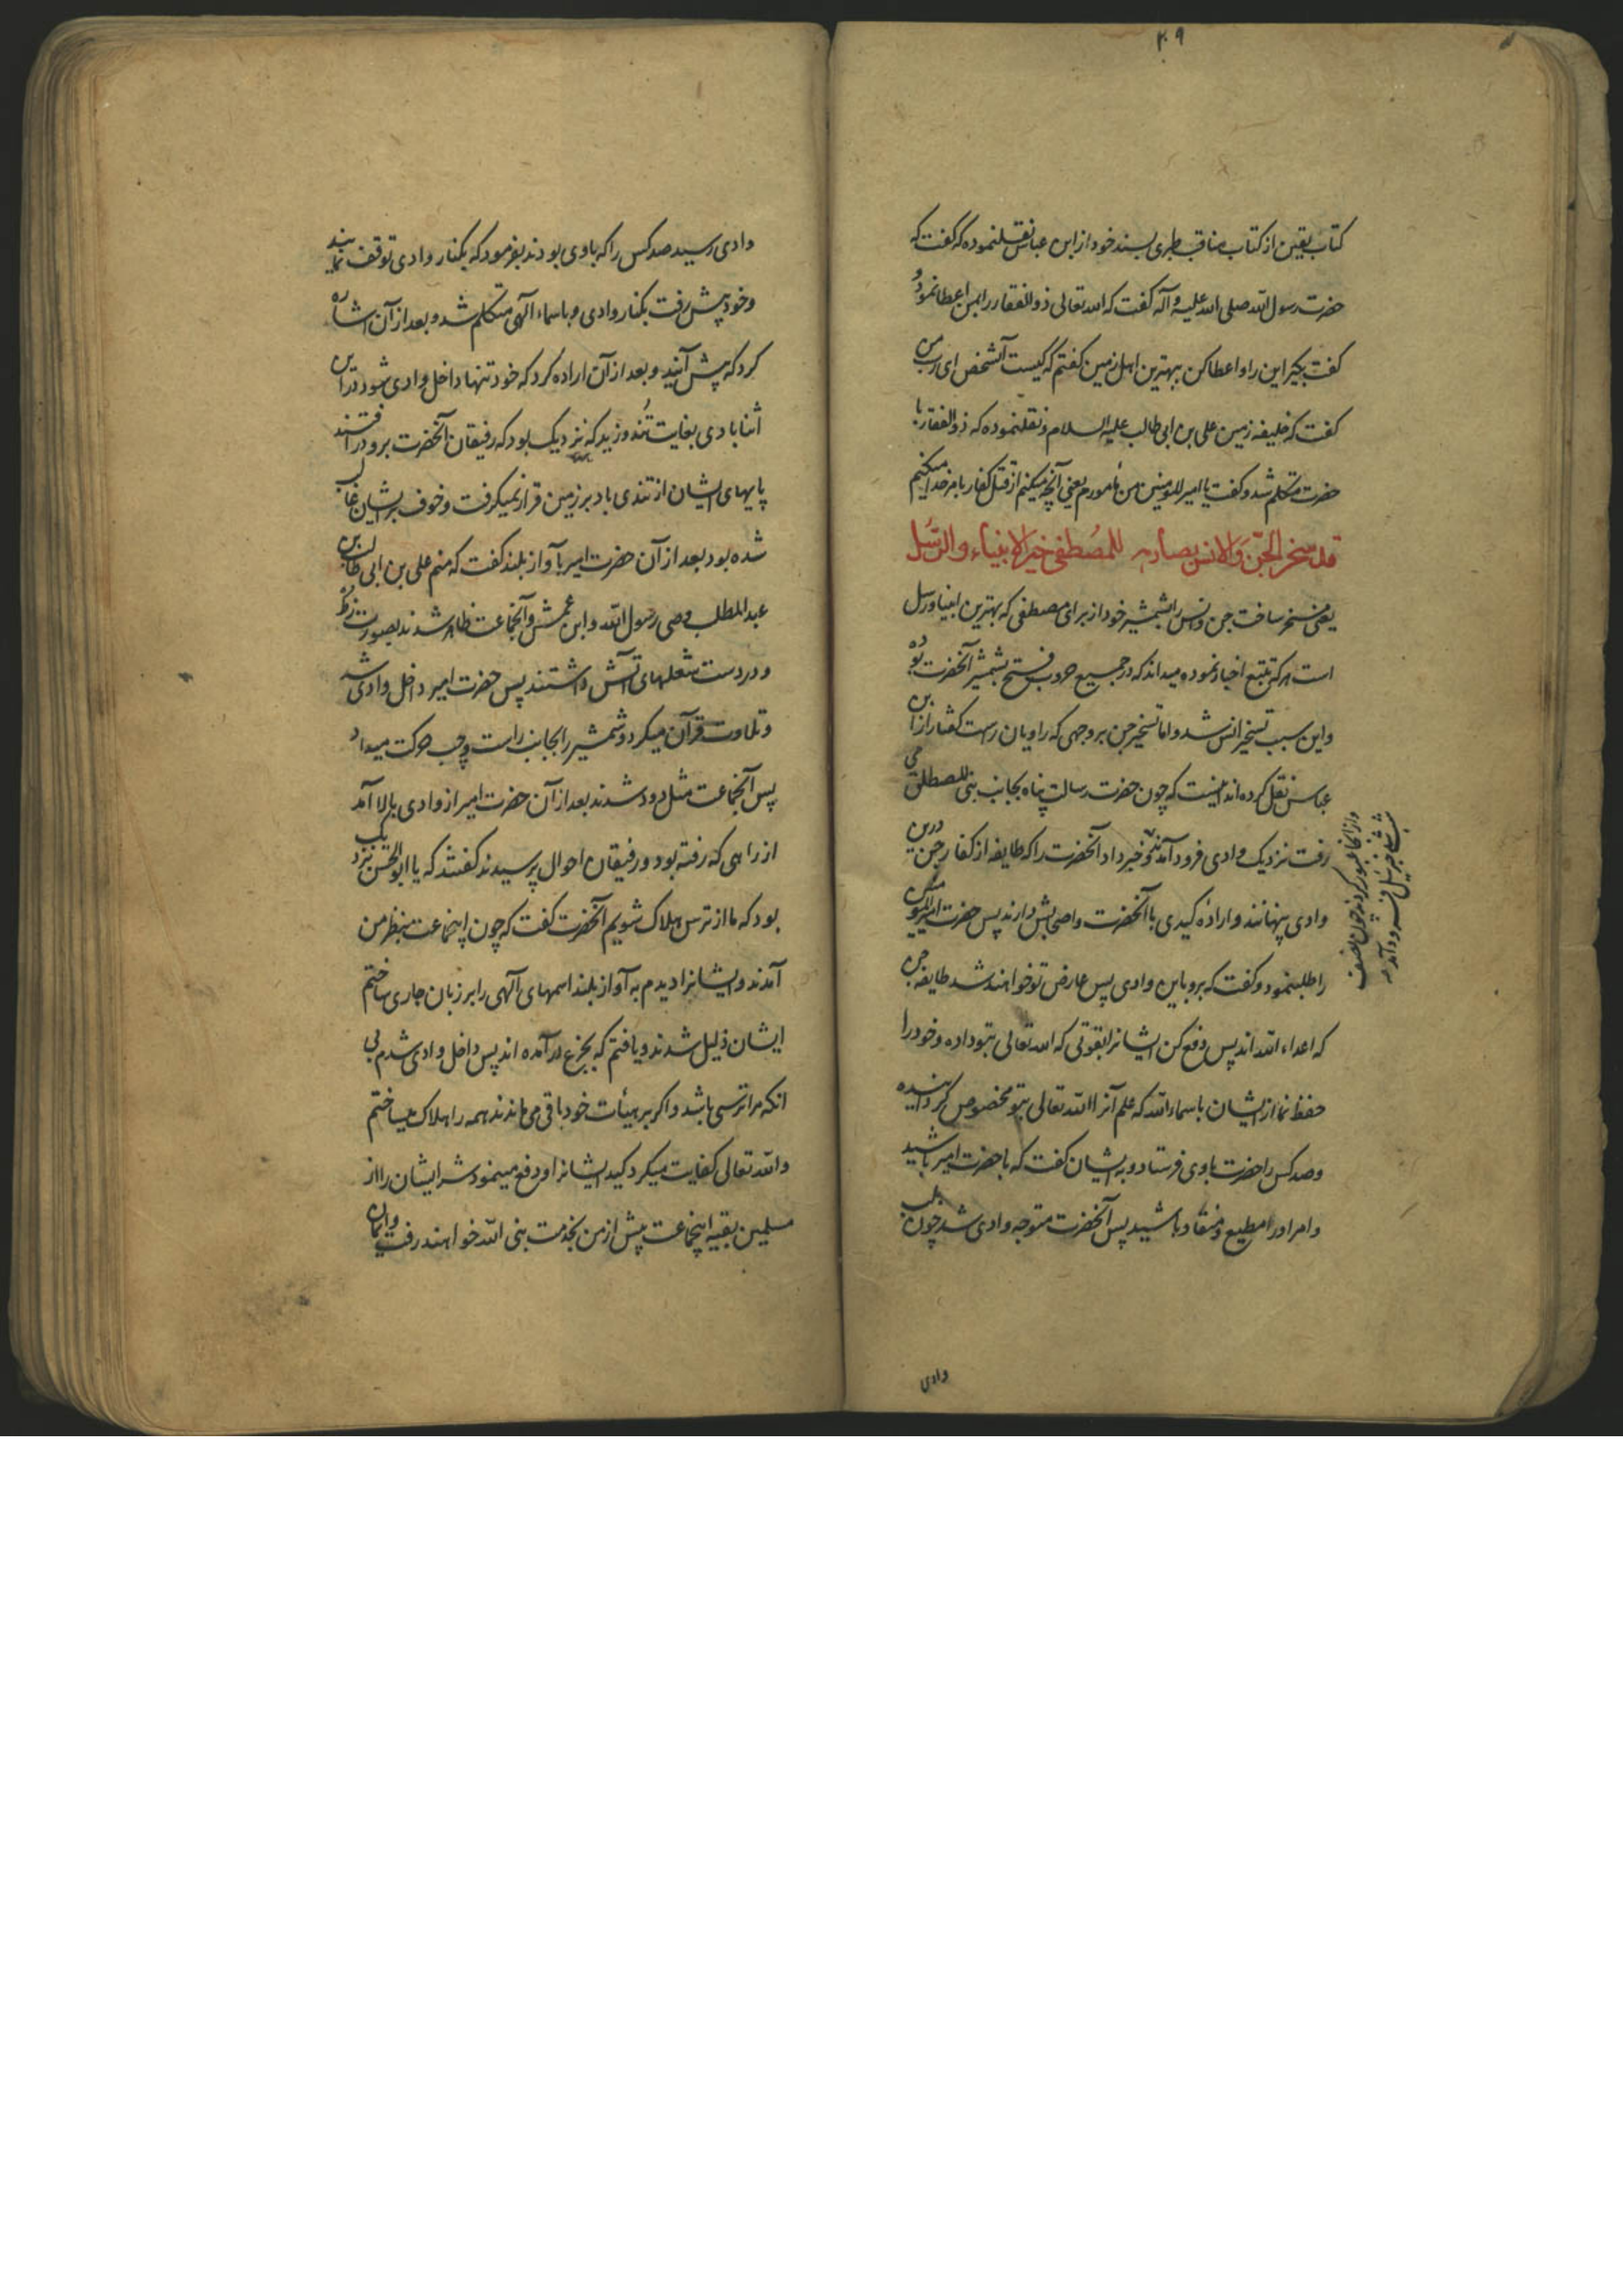 ۲۰۹
کتاب یقین از کتاب مناقب طبری بسند خود از ابن عباس نقلنموده که گفت که
حضرت رسول الله صلی الله علیه و آله گفت که الله تعالی ذوالفقار را بمن اعطا نمود و
گفت بگیر این را و اعطا کن ببهترین اهل زمین گفتم که کیست آنشخص ای رب من
گفت که خلیفه زمین علی بن ابی طالب علیه السلام و نقلنموده که ذوالفقار با
حضرت متکلم شد و گفت یا امیرالمومنین من مأمورم یعنی آنچه میکنم از قتل کفار بامر خدا میکنم
قد سخر الجن والانس بصارمه للمصطفی خیر الانبیاء والرسل
یعنی مسخر ساخت جن و انس را بشمشیر خود از برای مصطفی که بهترین انبیا و رسل
است هر که تتبع اخبار نموده میداند که در جمیع حروب فتح بشمشیر آنحضرت بوده
و این سبب تسخیر انس شد و اما تسخیر جن بر وجهی که راویان راست گفتار از ابن
عباس نقل کرده اند اینست که چون حضرت رسالت پناه بجانب بنی المصطلق می
رفت نزدیک وادی فرود آمدند و خبر داد آنحضرت را که طایفه از کفار جن درین
وادی پنهانند و اراده کیدی با آنحضرت و اصحابش دارند پس حضرت امیرالمومنین
را طلبنمود و گفت که برو باین وادی پس عارض تو خواهند شد طایفه جن
که اعداء الله اند پس دفع کن ایشانرا بقوتی که الله تعالی بتو داده و خود را
حفظ نما از ایشان باسماء الله که علم آنرا الله تعالی بتو مخصوص گردانیده
و صد کس را حضرت باوی فرستاد و به ایشان گفت که با حضرت امیر باشید
و امر او را مطیع و منقاد باشید پس آنحضرت متوجه وادی شد چون بلب
وادی
و از آنجا عبور کردند چون نصف
شب شد جبرئیل فرود آمد
وادی رسید صد کس را که باوی بودند بفرمود که بکنار وادی توقف نمایند
و خود پیش رفت بکنار وادی و باسماء الهی متکلم شد و بعد از آن اشاره
کرد که پیش آیند و بعد از آن اراده کرد که خود تنها داخل وادی شود درین
اثنا بادی بغایت تند وزید که نزدیک بود که رفیقان آنحضرت برو درافتند
پایهای ایشان از تندی باد بر زمین قرار نمیگرفت و خوف بر ایشان غالب
شده بود بعد از آن حضرت امیر بآواز بلند گفت که منم علی بن ابی طالب بن
عبدالمطلب وصی رسول الله و ابن عمش و آنجماعت ظاهر شدند بصورت زط
و در دست شعلهای آتش داشتند پس حضرت امیر داخل وادی شد
و تلاوت قرآن میکرد و شمشیر را بجانب راست و چپ حرکت میداد
پس آنجماعت مثل دود شدند بعد از آن حضرت امیر از وادی بالا آمد
از راهی که رفته بود و رفیقان احوال پرسیدند گفتند که یا ابوالحسن نزدیک
بود که ما از ترس هلاک شویم آنحضرت گفت که چون اینجماعت بنظر من
آمدند و ایشانرا دیدم به آواز بلند اسمهای الهی را بر زبان جاری ساختم
ایشان ذلیل شدند و یافتم که بجزع درآمده اند پس داخل وادی شدم بی
آنکه مرا ترسی باشد و اگر بر هیئات خود باقی میماندند همه را هلاک میساختم
و الله تعالی کفایت میکرد کید ایشانرا و دفع مینمود شر ایشان را از
مسلمین بقیه اینجماعت پیش از من بخدمت نبی الله خواهند رفت و ایمان